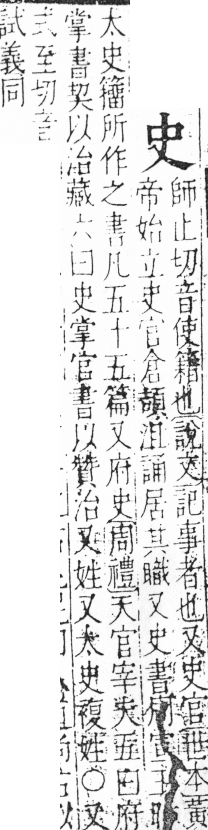 史
師止切音使籍也說文記事者也又史官世本黃
帝始立史官倉頡沮誦居其職又史書周宣王時
太史籀所作之書凡五十五篇又府史周禮天官宰夫五曰府
掌書契以治藏六曰史掌官書以贊治又姓又太史複姓○又
式至切音
試義同